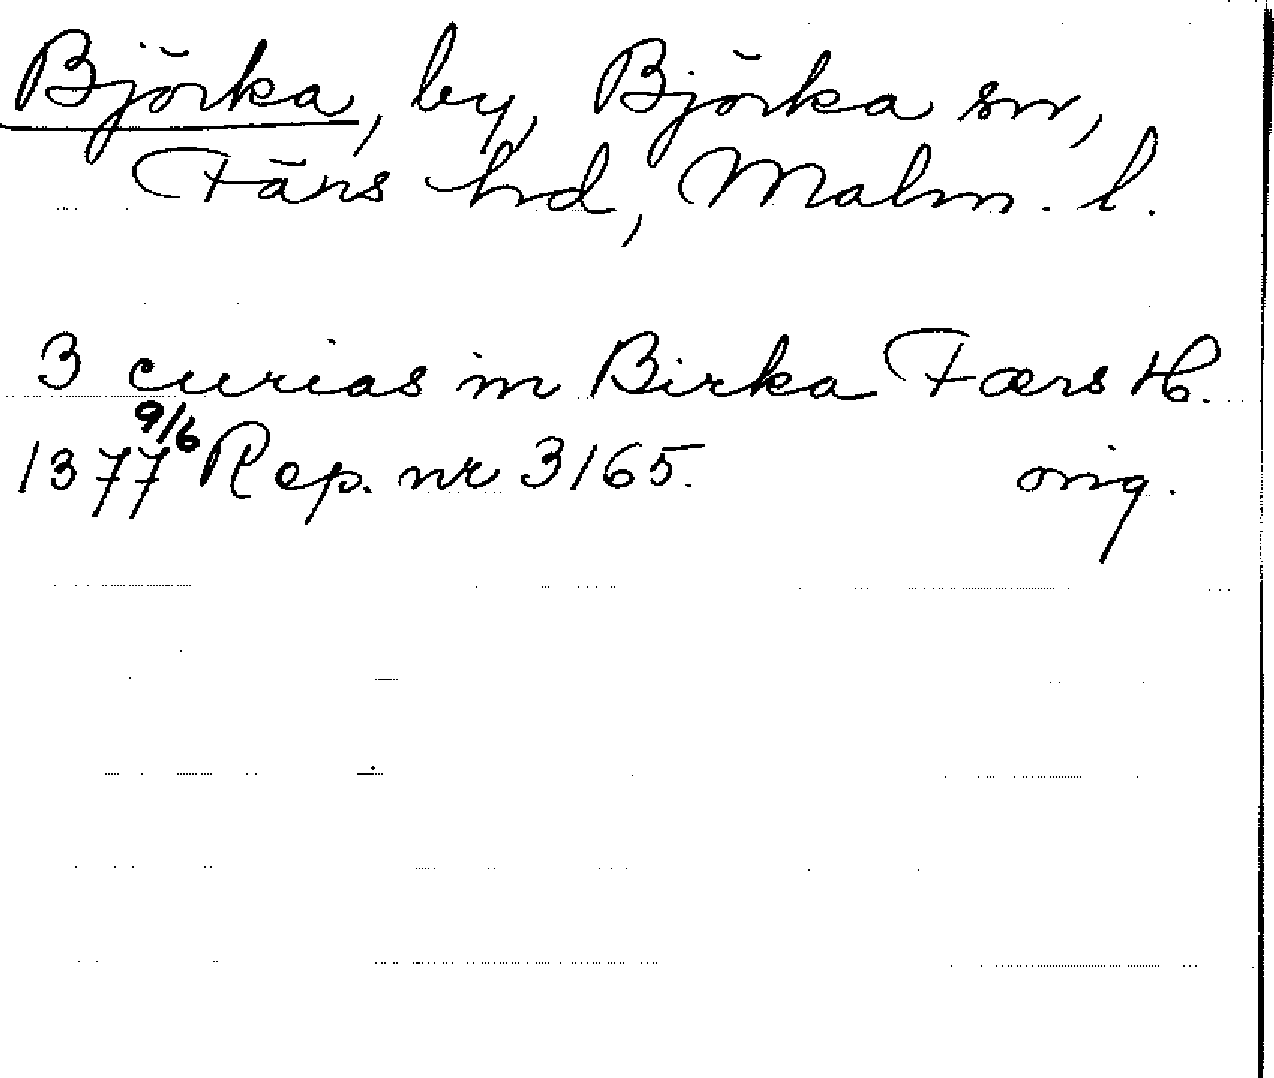 Björka, by, Björka sn,
Färs hd, Malm. l.
3 curias in Birka Færs H.
1377 9/6 Rep. nr 3165. orig.